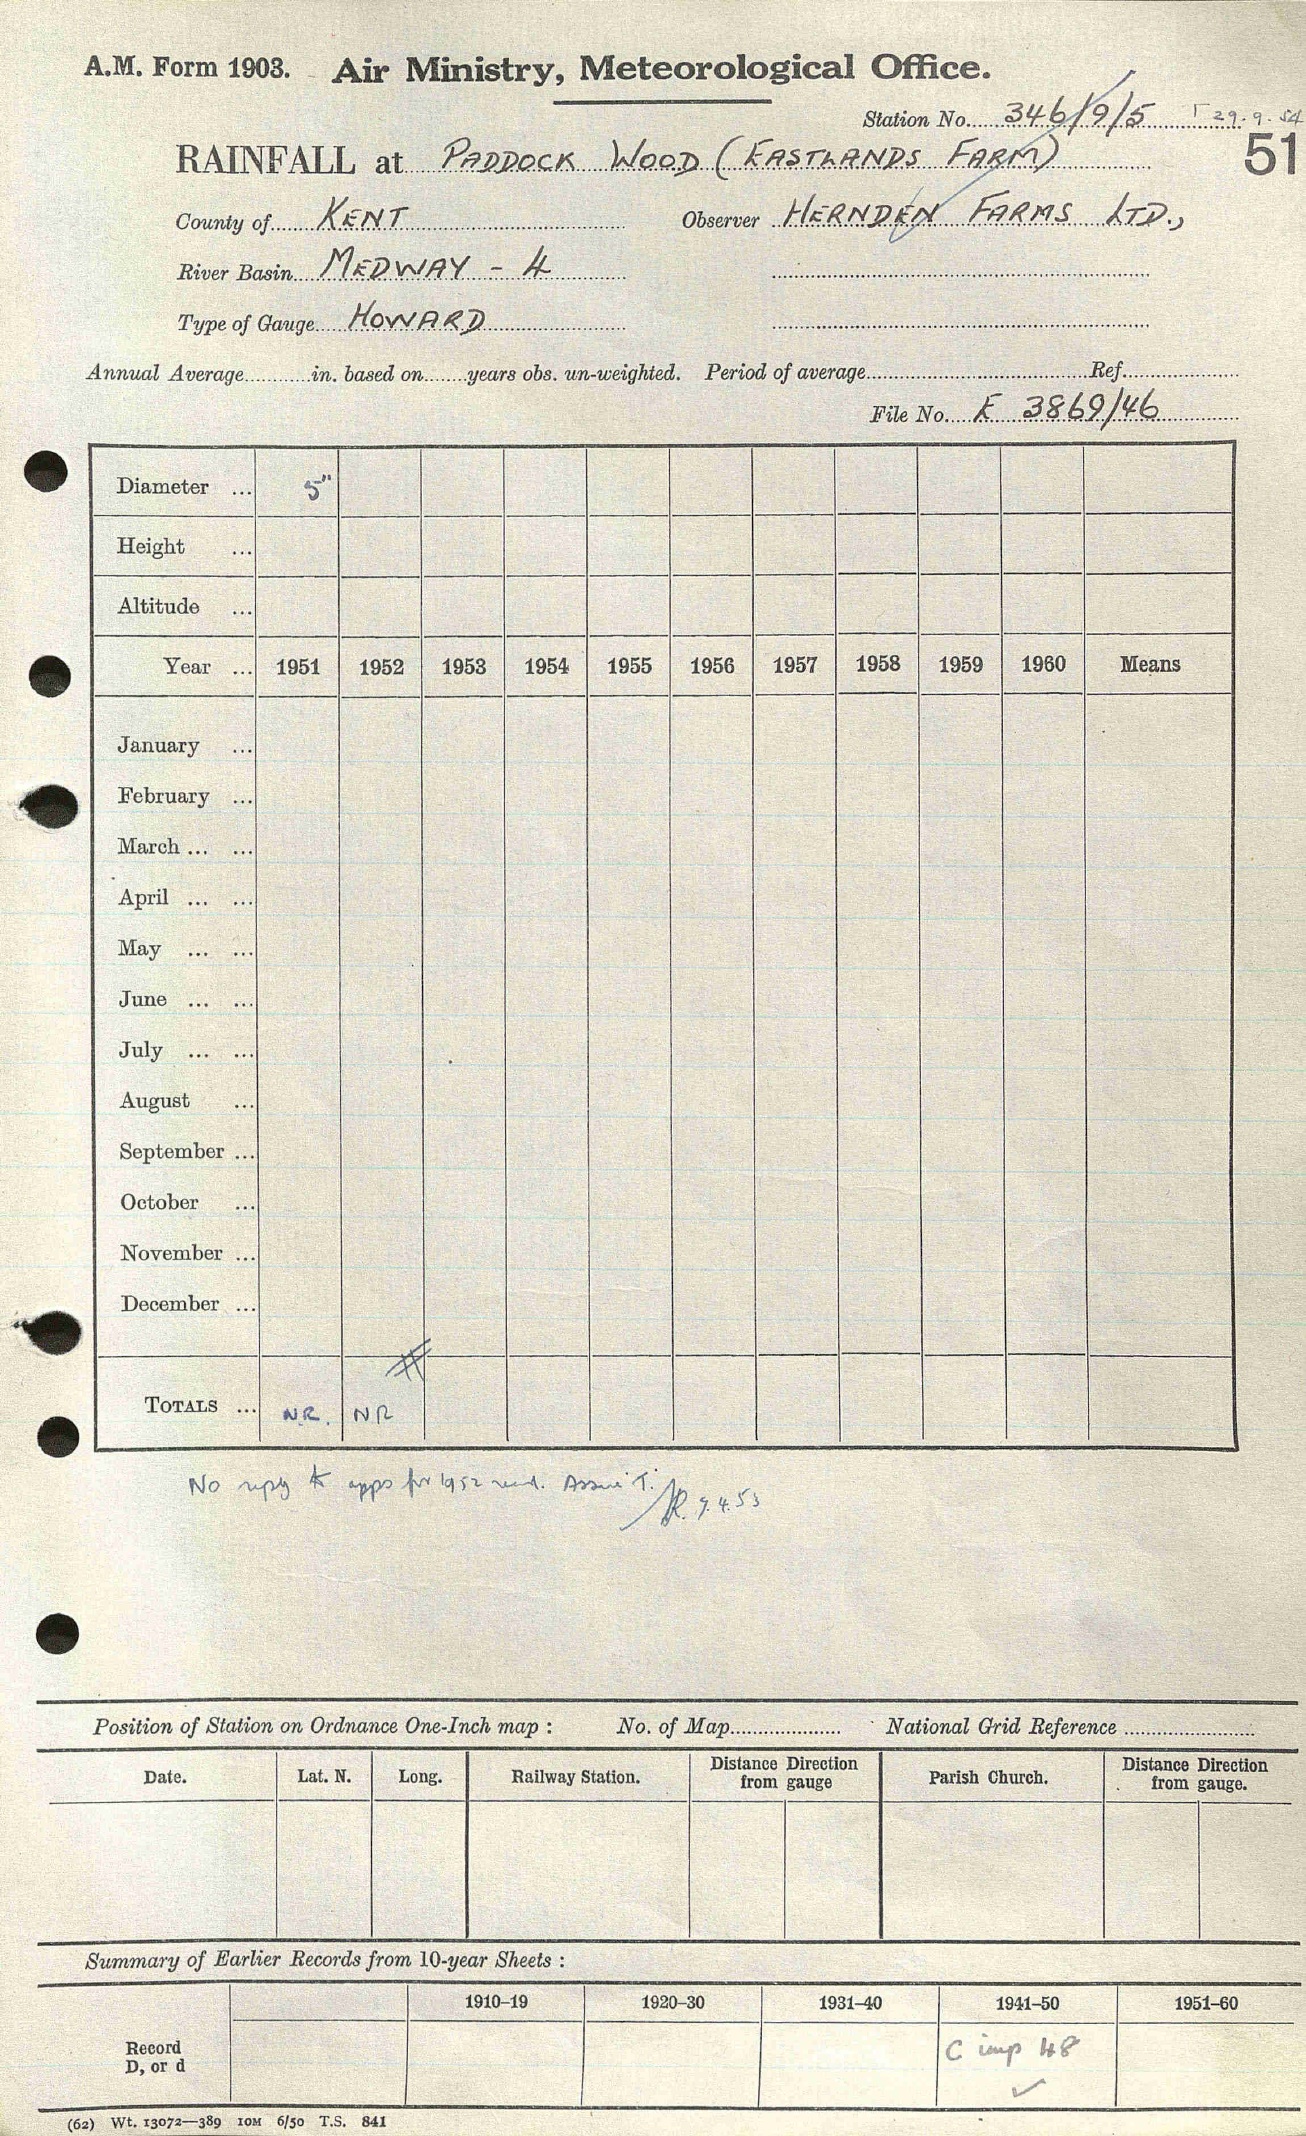 A.M. Form 1903. Air Ministry, Meteorological Office.
Station No. 346/9/5 T 29.9.54
51
RAINFALL at PADDOCK WOOD (EASTLANDS FARM)
County of KENT Observer HERNDEN FARMS LTD.,
River Basin MEDWAY - 4
Type of Gauge HOWARD
Annual Average............in. based on........years obs. un-weighted. Period of average........ Ref........
File No. E 3869/46
Diameter ... 5"
Height ...
Altitude ...
Year ... 1951 1952 1953 1954 1955 1956 1957 1958 1959 1960 Means
January ...
February ...
March ... ...
April ... ...
May ... ...
June ... ...
July ... ...
August ...
September ...
October ...
November ...
December ...
TOTALS ... N.R. NR
No reply to apps for 1952 . Assume 'T'.
9.4.53
Position of Station on Ordnance One-Inch map : No. of Map........ National Grid Reference ........
Date. Lat. N. Long. Railway Station. Distance Direction from gauge Parish Church. Distance Direction from gauge.
Summary of Earlier Records from 10-year Sheets :
1910–19 1920–30 1931–40 1941–50 1951–60
Record
D, or d C imp 48
(62) Wt. 13072—389 10M 6/50 T.S. 841